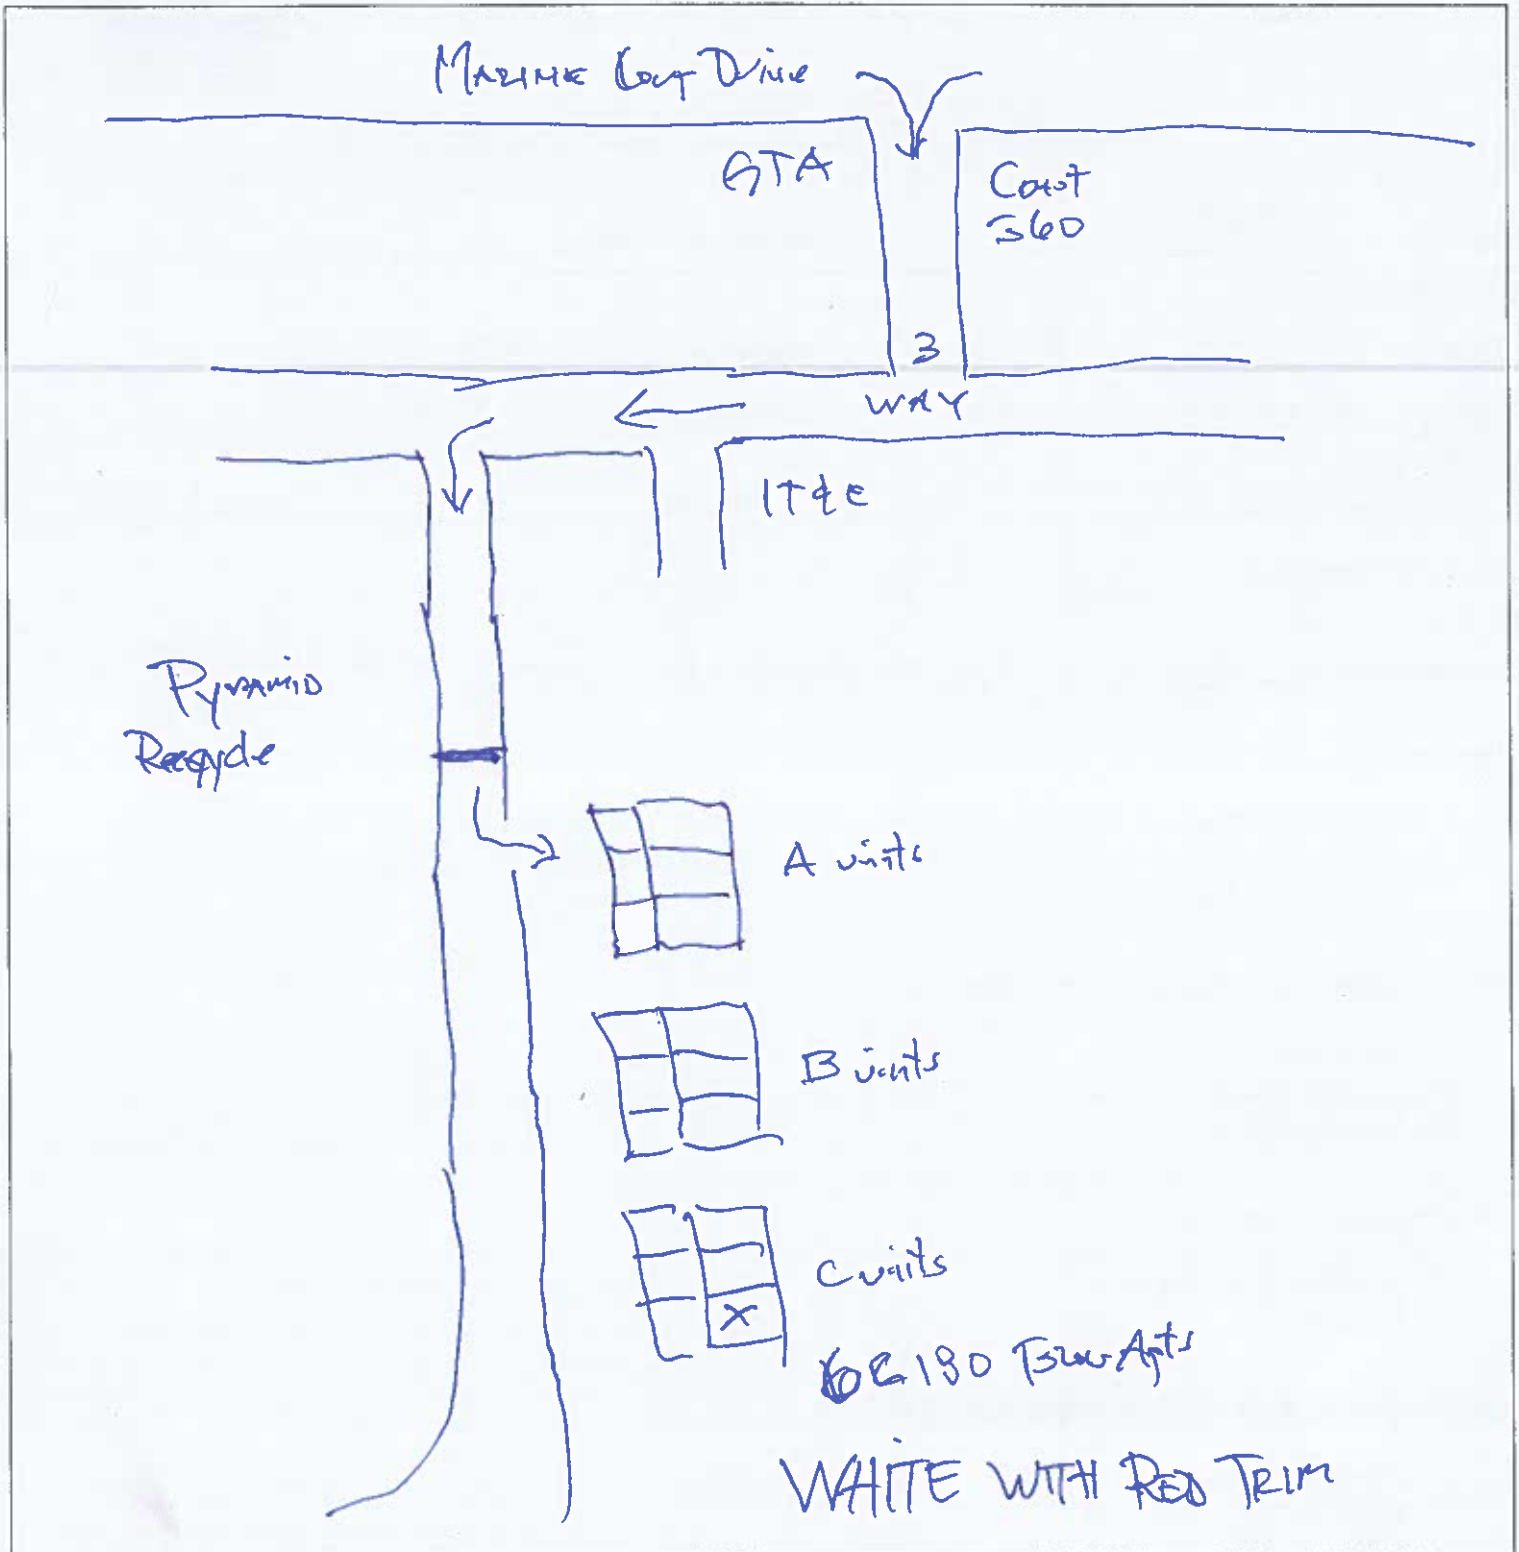 MARINE Drive
GTA
Coast
360
3
WAY
IT&E
PYRAMID
Recycle
A units
B units
C units
X
180 Apts
WHITE WITH RED TRIM